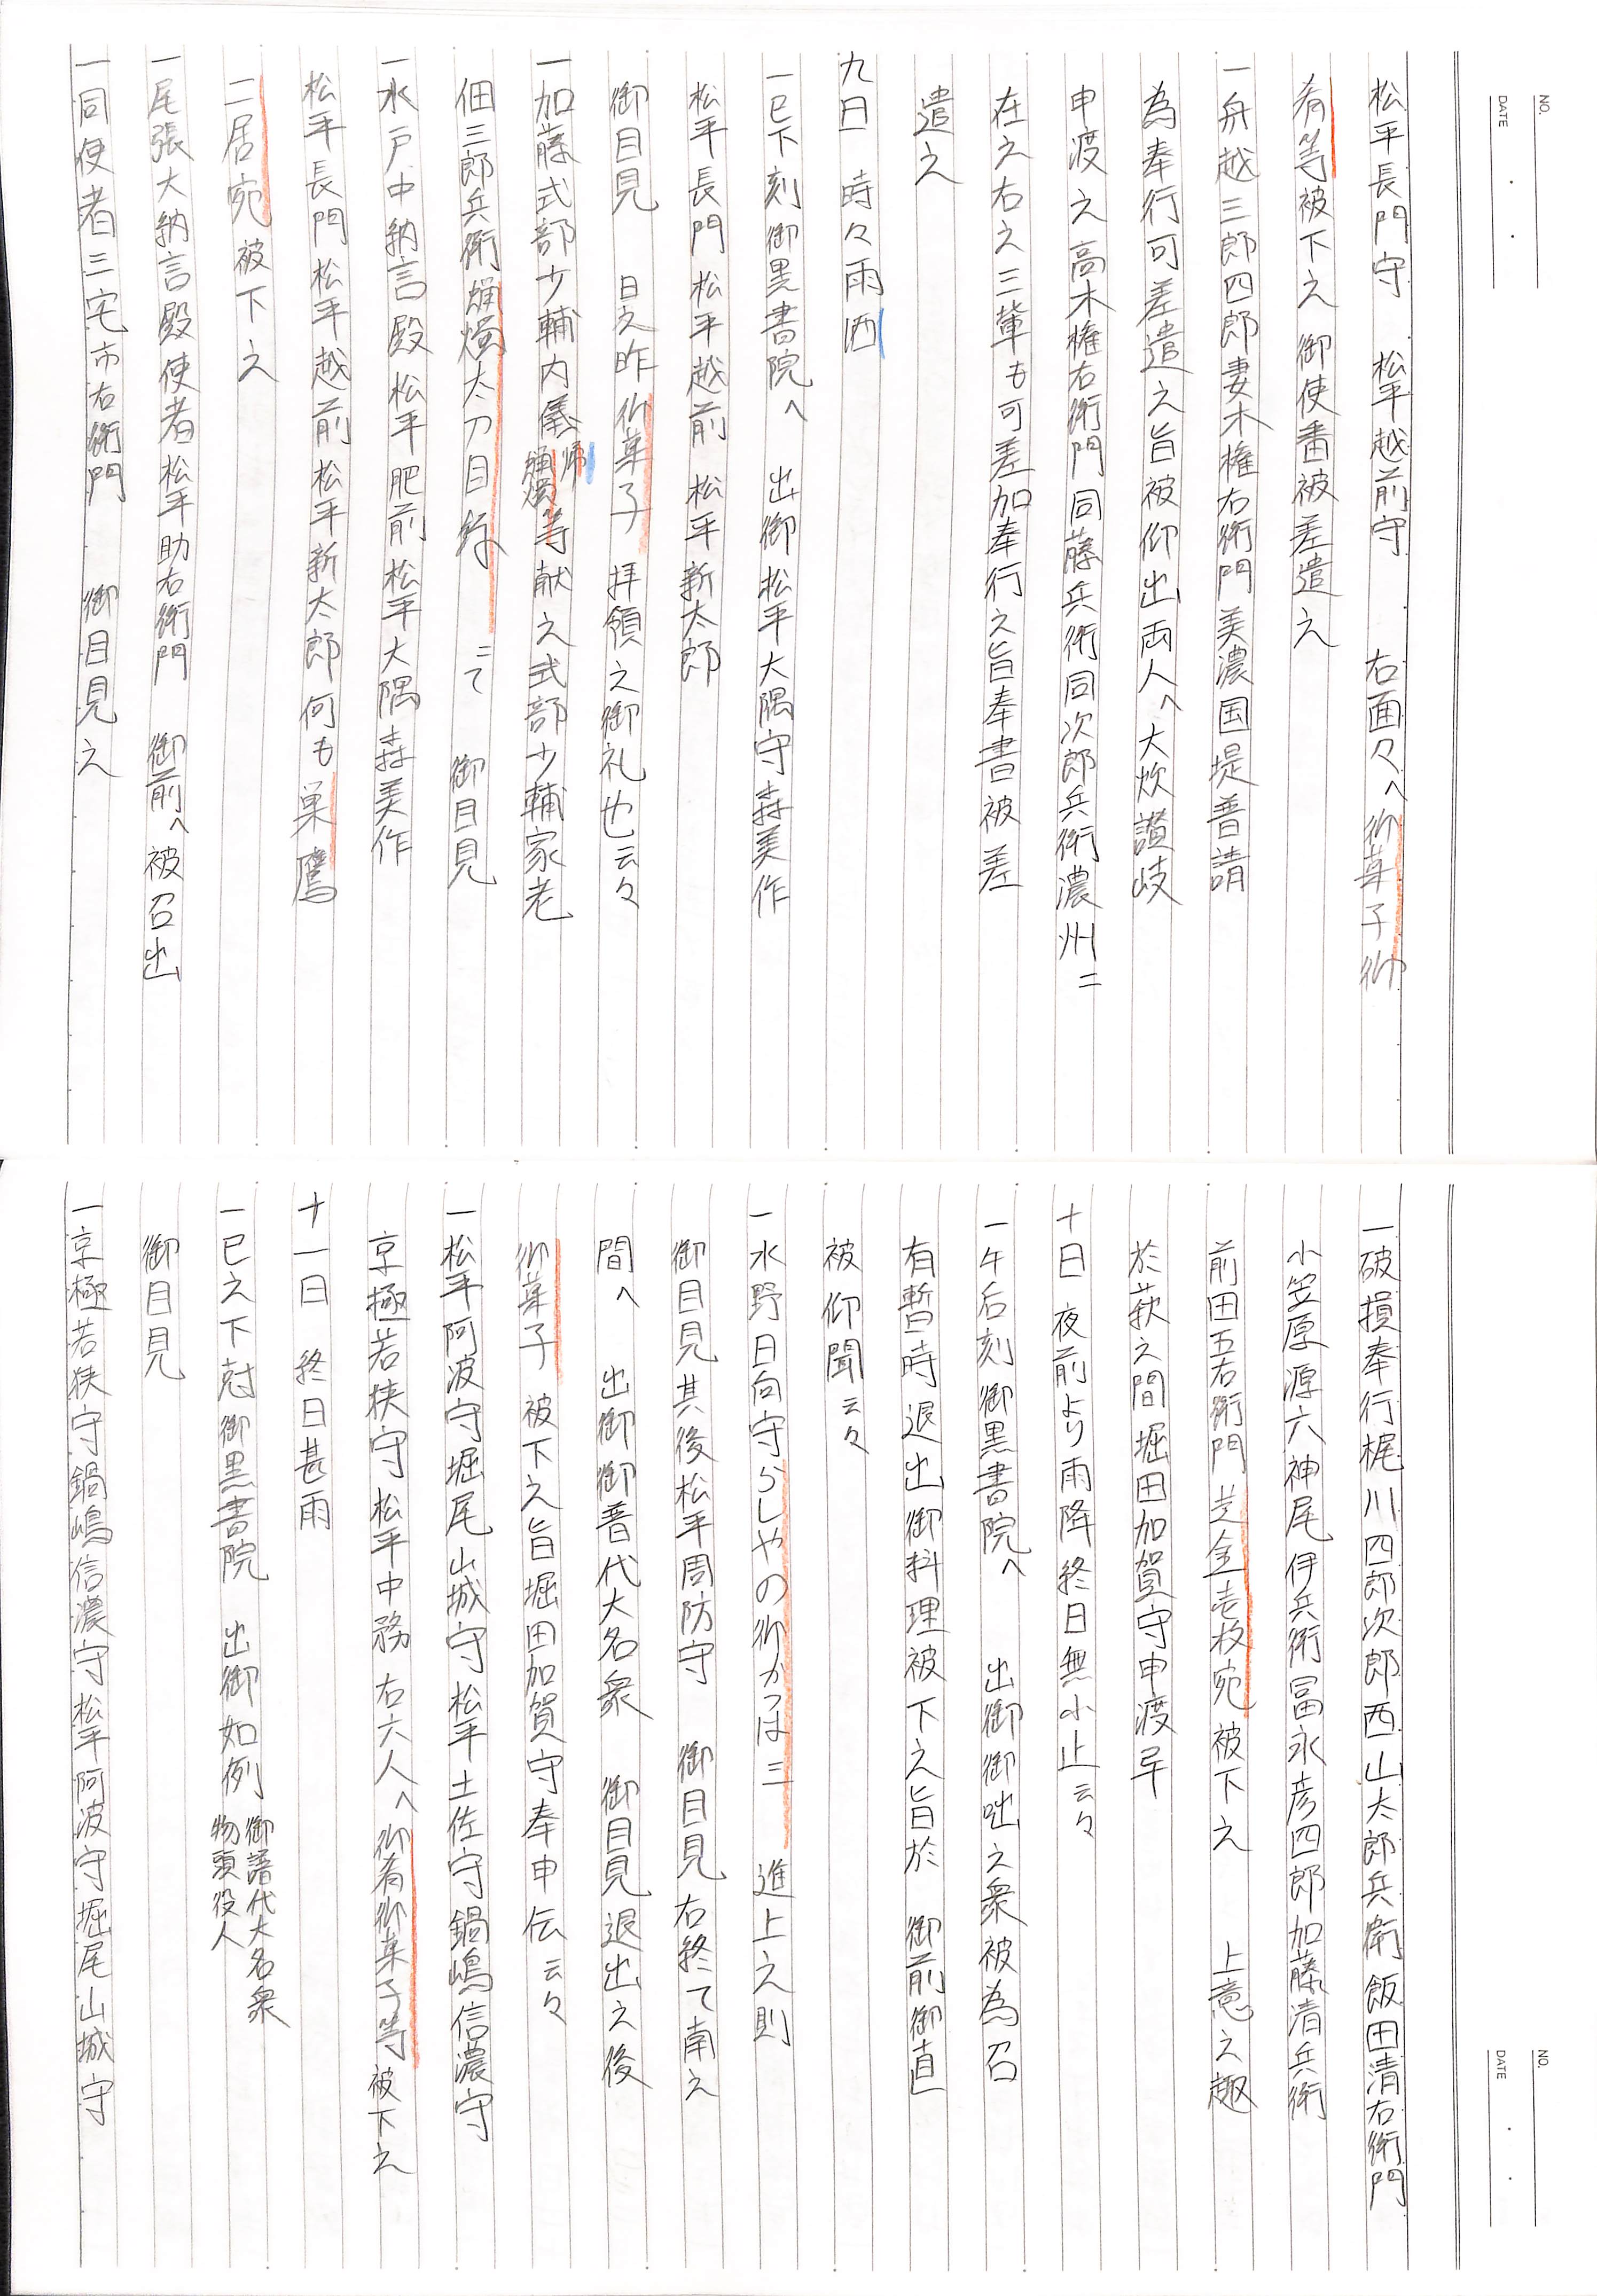 NO.
DATE
松平長門守 松平越前守 右面々へ御菓子御
肴等被下之 御使番被差遣之
一舟越三郎四郎妻木権右衛門美濃国堤普請
為奉行可差遣之旨被仰出両人へ大炊讃岐
申渡之高木権右衛門同藤兵衛同次郎兵衛濃州ニ
在之右之三輩も可差加奉行之旨奉書被差
遣之
九日 時々雨洒
一巳下刻御黒書院へ 出御松平大隅守森美作
松平長門松平越前 松平新太郎
御目見 日之昨御菓子 拝領之御礼也云々
一加藤式部少輔内儀帰蝋燭等献之式部少輔家老
佃三郎兵衛蝋燭太刀目録 ニて 御目見
一水戸中納言殿松平肥前松平大隅森美作
松平長門松平越前松平新太郎何も巣鷹
二居宛被下之
一尾張大納言殿使者松平助右衛門 御前へ被召出
一同使者三宅市右衛門 御目見之
NO.
DATE
一破損奉行梶川四郎次郎西山太郎兵衛飯田清右衛門
小笠原源六神尾伊兵衛冨永彦四郎加藤清兵衛
前田五右衛門芝金壱枚宛被下之 上意之趣
於萩之間堀田加賀守申渡早
十日 夜前より雨降終日無小止云々
一午后刻御黒書院へ 出御御咄之衆被為召
有暫時退出御料理被下之旨於 御前御直
被仰聞云々
一水野日向守らしやの御かつは三 進上之則
御目見其後松平周防守 御目見右終て南之
間へ 出御御普代大名衆 御目見退出之後
御菓子被下之旨堀田加賀守奉申伝云々
一松平阿波守堀尾山城守松平土佐守鍋嶋信濃守
京極若狭守松平中務 右六人へ御肴御菓子等被下之
十一日 終日甚雨
一巳之下尅御黒書院 出御如例 御譜代大名衆 物頭役人
御目見
一京極若狭守鍋嶋信濃守松平阿波守堀尾山城守